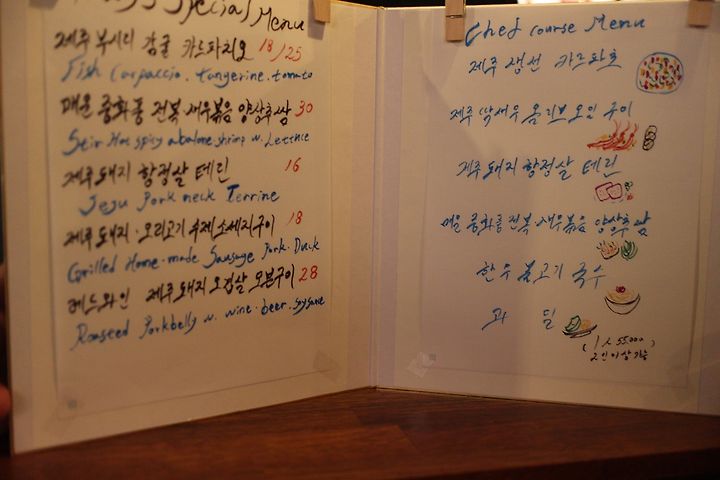 Special Menu
제주 부시리 감귤 카르파치오 18/25
Fish Carpaccio. tangerine. tomato
매운 중화풍 전복·새우볶음 양상추쌈 30
Stir Hot spicy abalone shrimp w. Lettuce
제주돼지 항정살 테린 16
Jeju Pork neck Terrine
제주돼지·오리고기 수제소세지구이 18
Grilled Home-made Sausage Pork. Duck
레드와인 제주돼지오겹살 오븐구이 28
Roasted Porkbelly w. wine. beer.
Chef course Menu
제주 생선 카르파쵸
제주 딱새우 올리브오일 구이
제주돼지 항정살 테린
매운 중화풍 전복·새우볶음 양상추쌈
한우 불고기 국수
과일
(1人 55.000)
2인이상가능